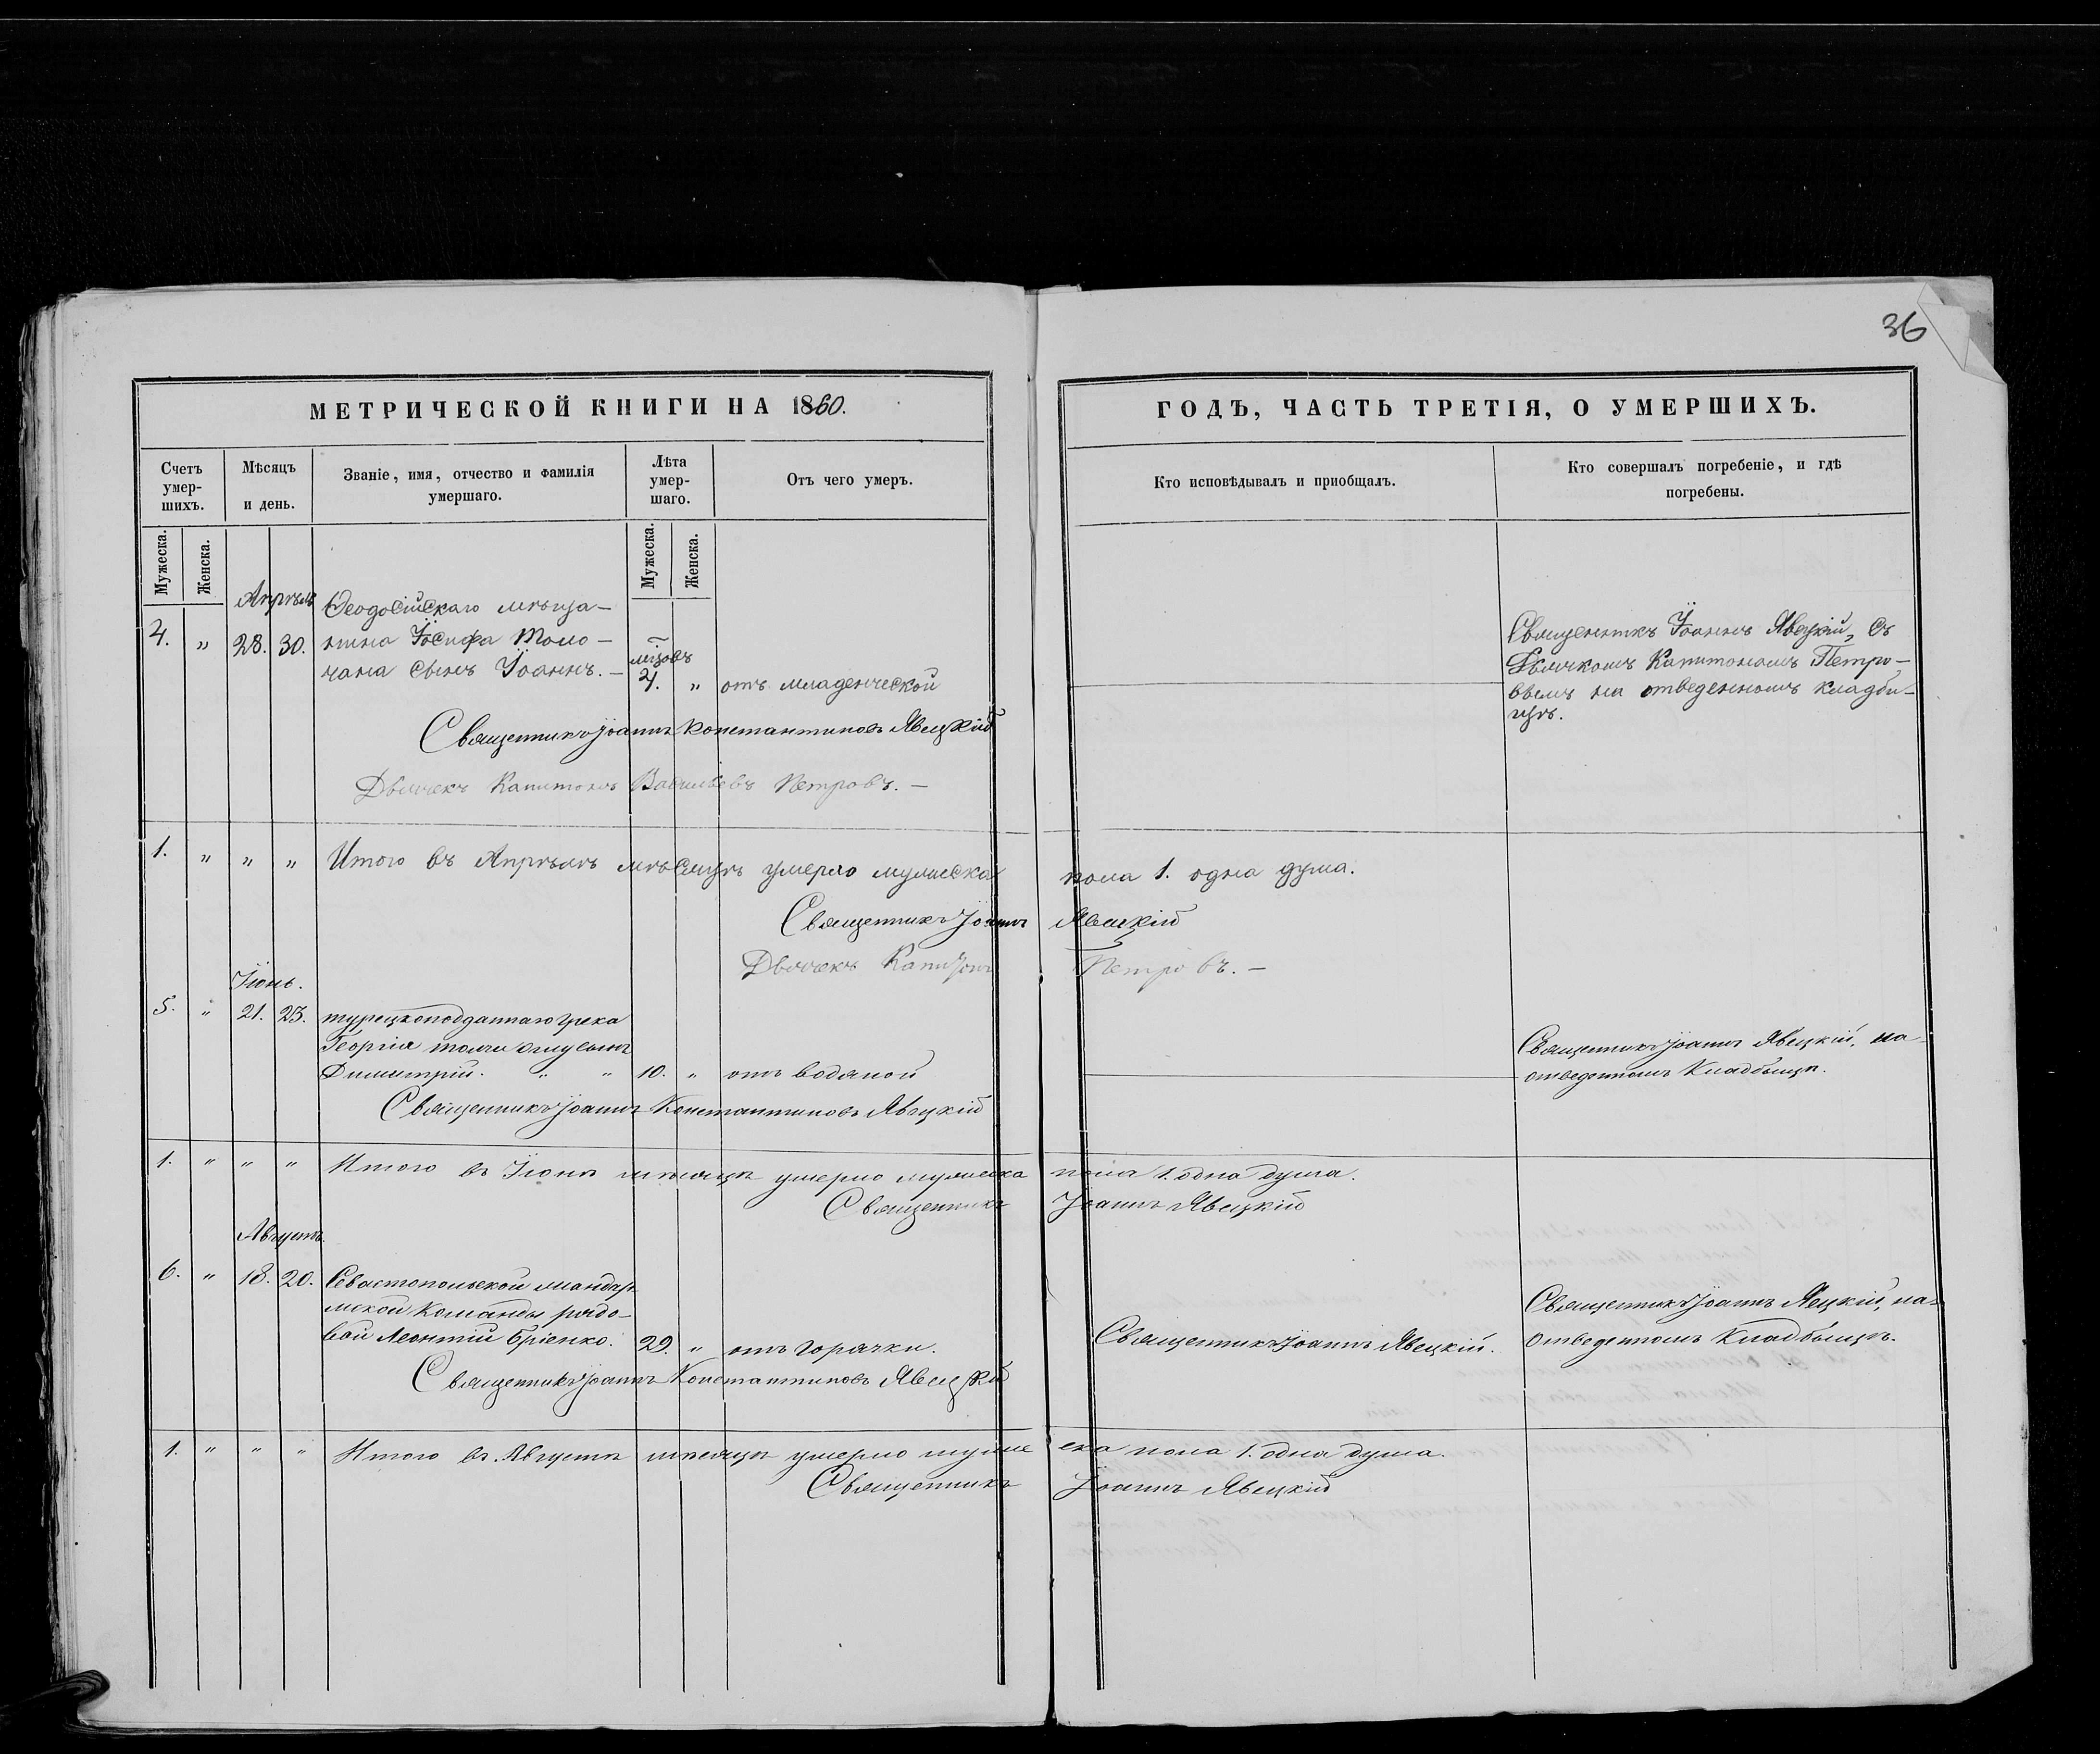 36
МЕТРИЧЕСКОЙ КНИГИ НА 1860.
ГОДЪ, ЧАСТЬ ТРЕТІЯ, О УМЕРШИХЪ.
Счетъ умер-
шихъ.
Мѣсяцъ
и день.
Званіе, имя, отчество и фамилія
умершаго.
Лѣта
умер-
шаго.
Отъ чего умеръ.
Кто исповѣдывалъ и приобщалъ.
Кто совершалъ погребеніе, и гдѣ
погребены.
Мужеска.
Женска.
Мужеска.
Женска.
Апрѣль
Ѳеодосійскаго мѣща-
4. " 28. 30. нина Іосифа
сынъ Іоаннъ. —
4. " отъ младенческой
Священникъ Іоаннъ Явецкій, съ
Дьячкомъ Капитономъ Петро-
вымъ на отведенномъ кладби-
щѣ.
Священникъ Іоаннъ Константиновъ Явецкій
Дьячекъ Капитонъ Васильевъ Петровъ. —
1. " " " Итого въ Апрѣлѣ мѣсяцѣ умерло мужеска пола 1. одна душа.
Священникъ Іоаннъ Явецкій
Дьячекъ Капитонъ Петровъ. —
Іюнь.
5. " 21. 23. турецкоподданнаго грека
Георгія сынъ
Димитрій. " " 10. " отъ водяной
Священникъ Іоаннъ Явецкій, на
отведенномъ Кладбищѣ.
Священникъ Іоаннъ Константиновъ Явецкій
1. " " " Итого въ Іюнѣ мѣсяцѣ умерло мужеска пола 1. одна душа.
Священникъ Іоаннъ Явецкій
Августъ
6. " 18. 20. Севастопольской жандар
мской Команды рядо-
вой Леонтій 29. " отъ горячки.
Священникъ Іоаннъ Явецкій.
Священникъ Іоаннъ Явецкій, на
отведенномъ Кладбищѣ.
Священникъ Іоаннъ Константиновъ Явецкій
1. " " " Итого въ Августѣ мѣсяцѣ умерло муже ска пола 1. одна душа.
Священникъ Іоаннъ Явецкій